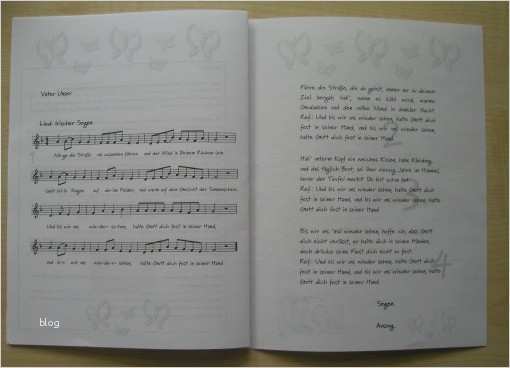 Vater Unser
Lied: Irischer Segen
Möge die Straße uns zusammen führen und der Wind in Deinem Rücken sein
sanft falle Regen auf deine Felder, und warm auf dein Gesicht der Sonnenschein.
Und bis wir uns wieder sehen, halte Gott dich fest in seiner Hand,
und bis wir uns wieder sehen, halte Gott dich fest in seiner Hand.
blog
Führe die Straße, die du gehst, immer nur zu deinem
Ziel bergab; hab', wenn es kühl wird, warme
Gedanken und den vollen Mond in dunkler Nacht.
Ref.: Und bis wir uns wieder sehen, halte Gott dich
fest in seiner Hand, und bis wir uns wieder sehen,
halte Gott dich fest in seiner Hand.
Hab' unterm Kopf ein weiches Kissen, habe Kleidung,
und das täglich Brot; sei über vierzig Jahre im Himmel,
bevor der Teufel merkt: Du bist schon tot.
Ref.: Und bis wir uns wieder sehen, halte Gott dich
fest in seiner Hand, und bis wir uns wieder sehen, halte
Gott dich fest in seiner Hand.
Bis wir uns 'mal wieder sehen, hoffe ich, dass Gott
dich nicht verlässt; er halte dich in seinen Händen,
doch drücke seine Faust dich nicht zu fest.
Ref.: Und bis wir uns wieder sehen, halte Gott dich
fest in seiner Hand, und bis wir uns wieder sehen, halte
Gott dich fest in seiner Hand.
4
Segen
Auszug